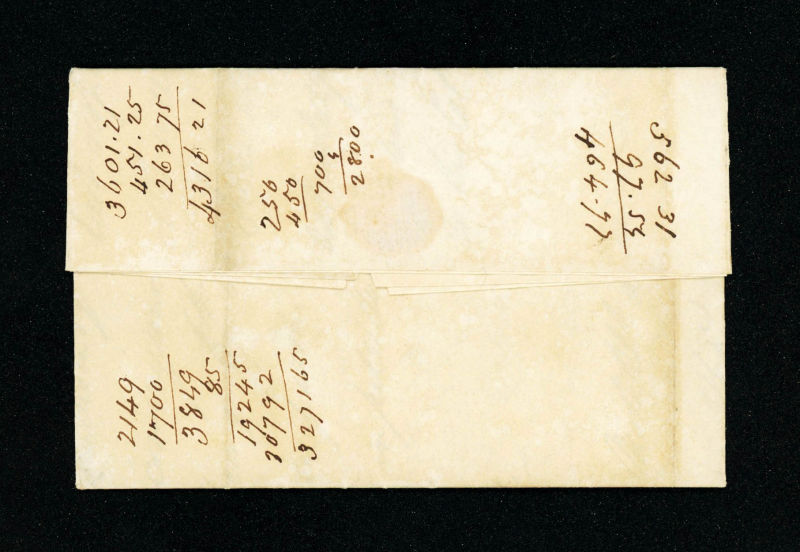 3601.21
451.25
263 75
4316 21
250
450
700
4
2800
562 31
97.53
464.77
2149
1700
3849
85
19245
30792
327165